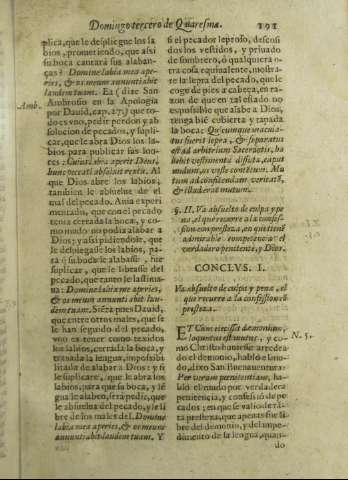 Domingo tercero de Quaresma. 191
plica, que le despliegue los la
bios, prometiendo, que assi
su boca cantarà sus alaban-
ças: Domine labia mea ape-
ries, & os meum annuntiabit
laudem tuam. Ea (dize San
Ambrosio en la Apologia
por Dauid, cap. 17.) que to-
do es vno, pedir perdon y ab
solucion de pecados, y supli-
car, que le abra Dios los la-
bios para publicar sus loo-
res: Cuius labia aperit Deus,
hunc peccati absoluit reatu. Al
que Dios abre los labios,
tambien le absuelue de el
mal del pecado. Auia experi
mentado, que con el pecado
tenia cerrada la boca, y co-
mo mudo no podia alabar a
Dios; y assi pidiendole, que
le despliegasse los labios, pa-
ra que su boca le alabasse, fue
suplicar, que le librasse del
pecado, que tanto le lastima-
ua: Domine labia mea aperies,
& os meum annuntiabit lau-
dem tuam. Sintiò pues Dauid,
que entre otros males, que se
le han seguido del pecado,
vno es tener como texidos
los labios, cerrada la boca, y
trauada la lengua, impossibi-
litada de alabar a Dios: y si
le suplicare, que le abra los
labios, para que su boca, y lē
gua le alaben, serà pedir, que
le absuelua del pecado, y le li
bre de los males del. Domine
labia mea aperies, & os meum
annuntiabit laudem tuam. Y
Amb.
si el pecador leproso, descosi
dos los vestidos, y priuado
de sombrero, ò qualquiera o-
tra cosa equiualente, mostra-
re la lepra del pecado, que le
coge de pies a cabeça, en ra-
zon de que en tal estado no
es possible que alabe a Dios,
tenga biē cubierta y tapada
la boca: Quicumque macula-
tus fuerit lepra, & separatus
est ad arbitrium Sacerdotis, ha
bebit vestimenta dissuta, caput
nudum, os veste contectum. Mu
tum ad confitendum veritatē,
& illud erat mutum.
§. II. Va absuelto de culpa y pe
na, el que recurre a la confes-
sion con presteza, en que tienē
admirable competencia el
verdadero penitente, y Dios.
CONCLVS. I.
Va absuelto de culpa y pena, el
que recurre a la confession cō
presteza.
ET Cùm eiecisset dæmonium,
loquutus est mutus, y co-
mo Christo huuiesse arredra
do el demonio, hablò el mu-
do, dixo San Buenauentura:
Per veram pœnitentiam, ha-
blò el mudo por verdadera
penitencia, y confessiò de pe
cados; en que se valiò de tā-
ta presteza, que apenas fue li
bre del demonio, y del impe-
dimento de la lengua, quan-
do
N. 5.